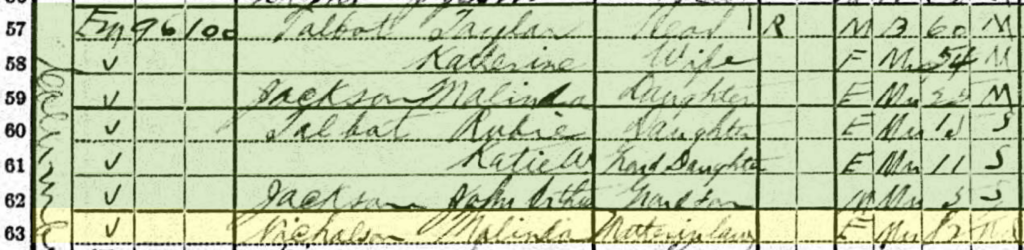 57 Em 96 100 Talbot Taylor Head 1 R M B 60 M
58 ✓ Katherine Wife F Mu 54 M
59 ✓ Jackson Malinda Daughter F Mu M
60 ✓ Talbot Rubie Daughter F Mu S
61 ✓ Katie W Grand Daughter F Mu 11 S
62 ✓ Jackson John Arthur Grandson M Mu S
63 ✓ Nicholson Malinda Motherinlaw F Mu